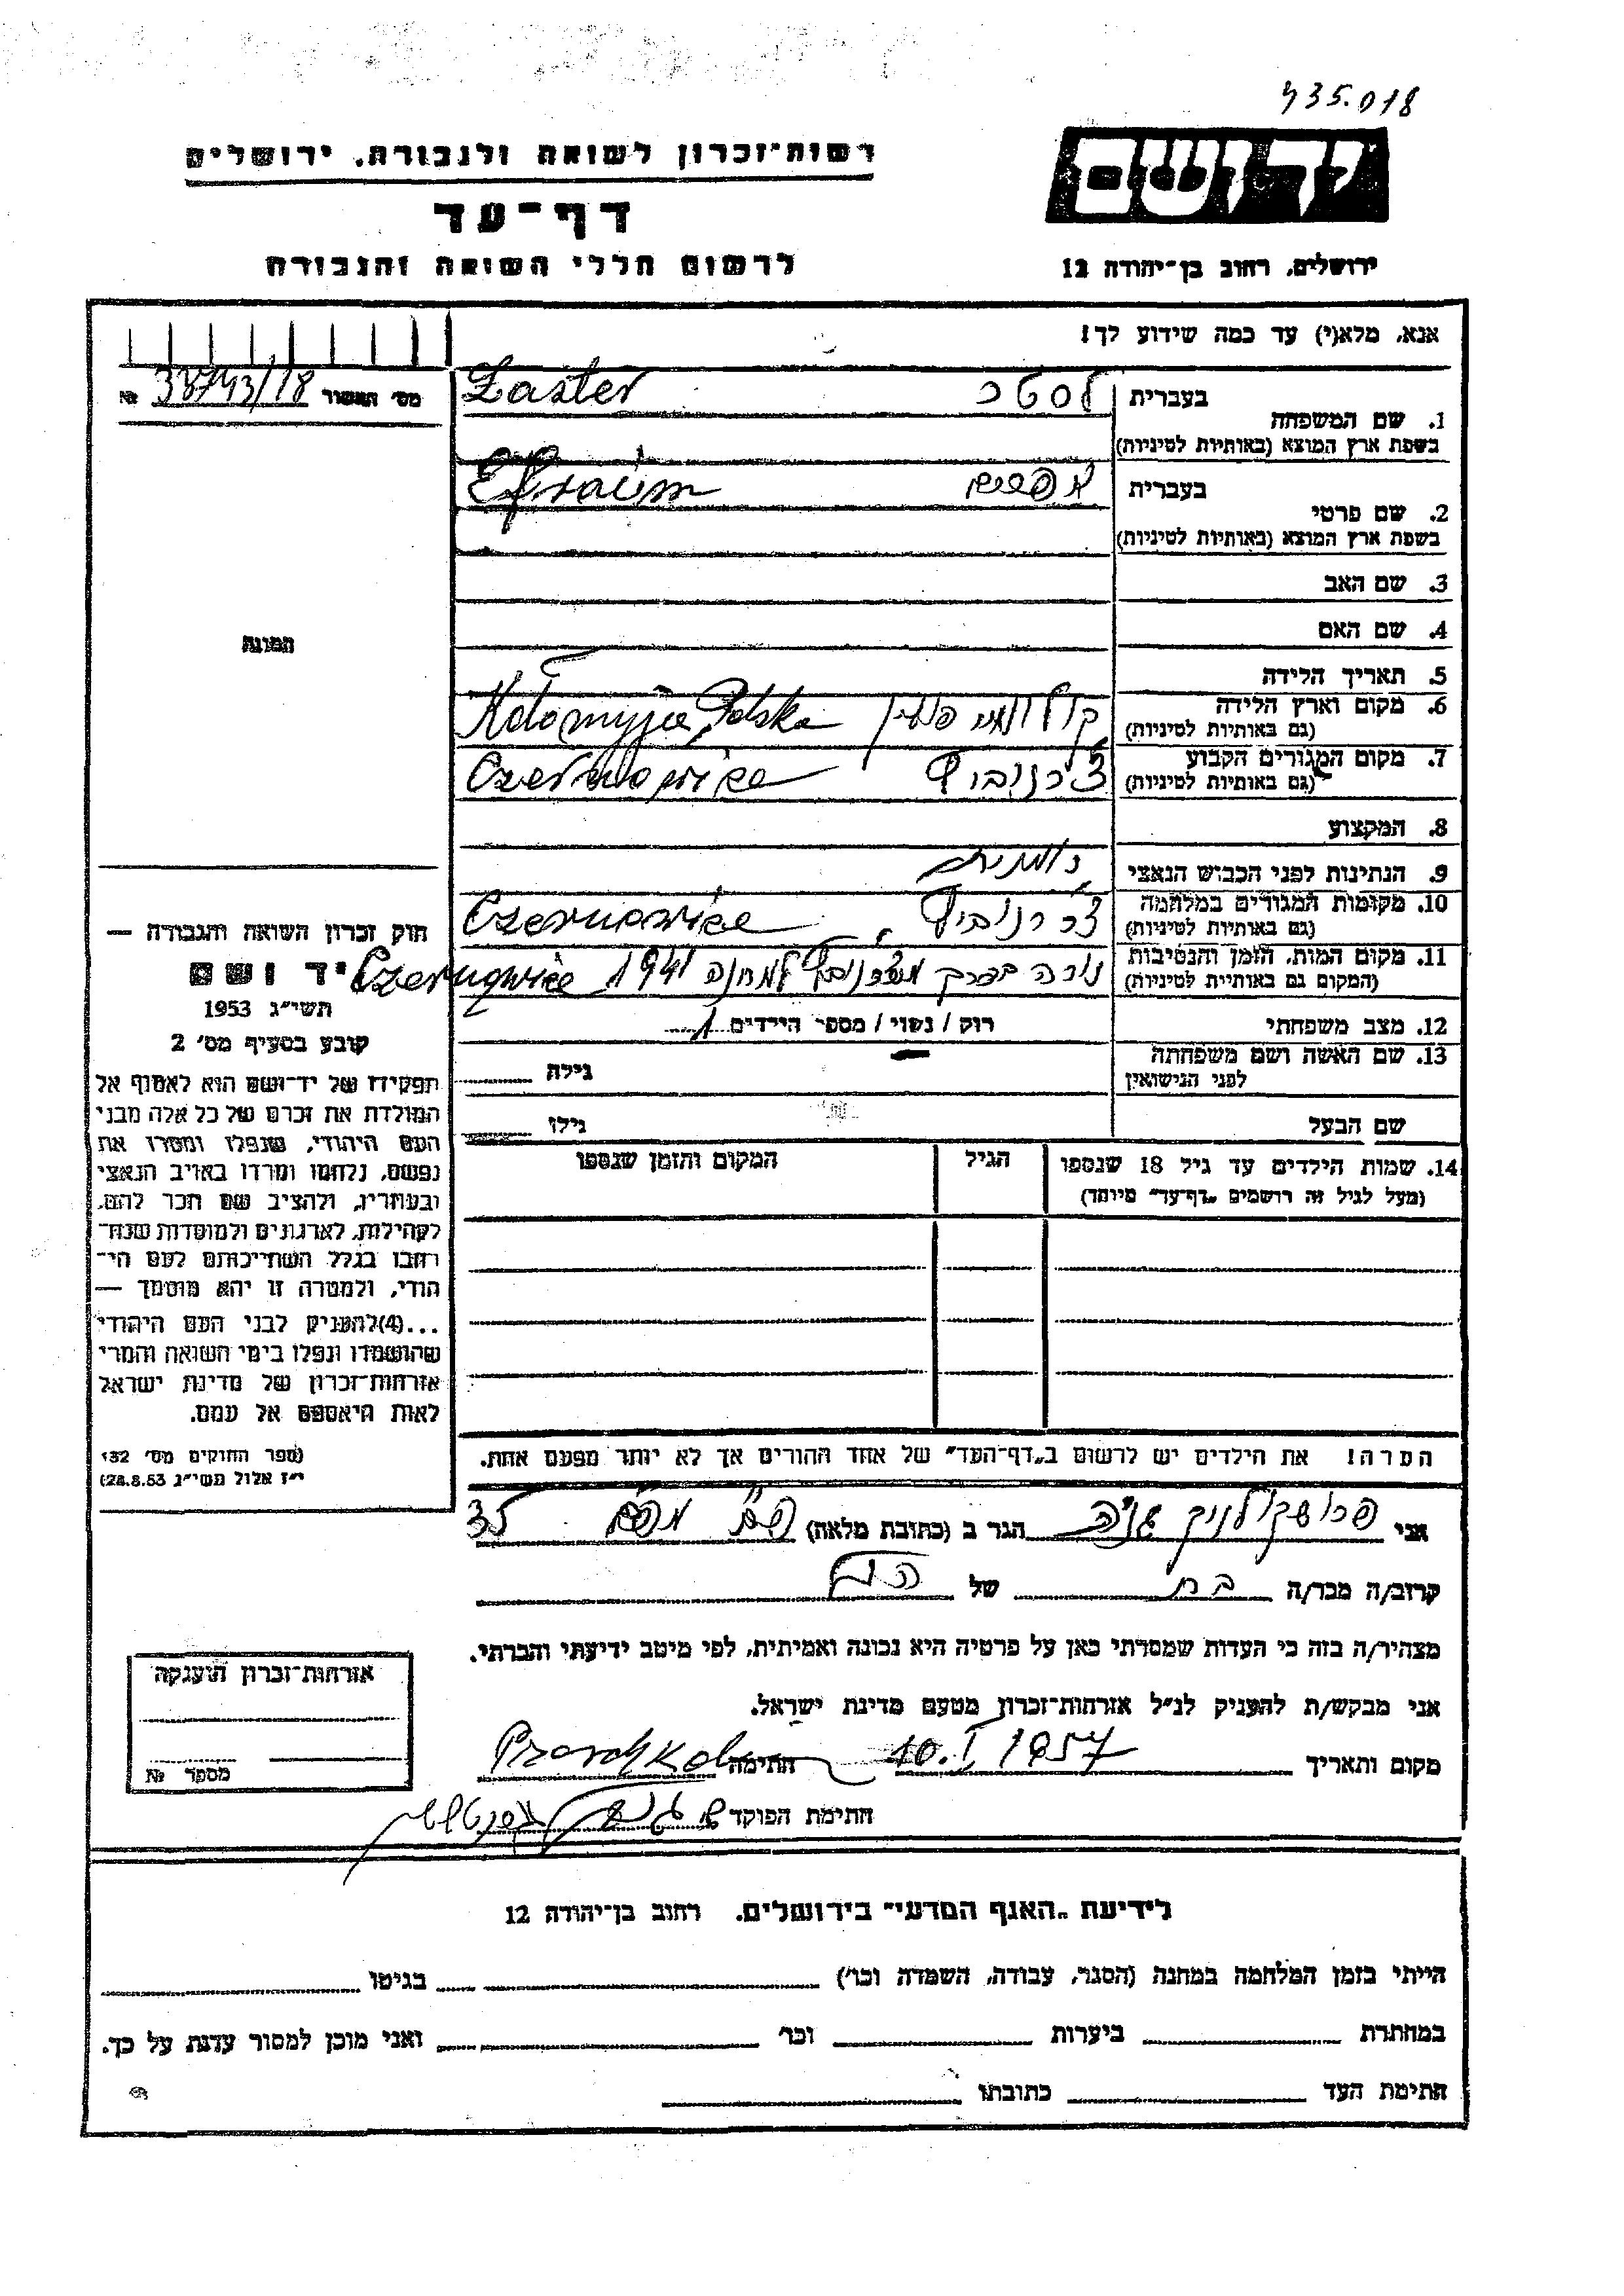 435.018
רשות־זכרון לשואה ולגבורה, ירושלים
יד ושם
דף־עד
לרשום חללי השואה והגבורה
ירושלים, רחוב בן־יהודה 12
אנא, מלא(י) עד כמה שידוע לך!
מס׳ האשור 38743/18 №
בעברית לסטר Laster
1. שם המשפחה
בשפת ארץ המוצא (באותיות לטיניות)
בעברית אפרים Efraim
2. שם פרטי
בשפת ארץ המוצא (באותיות לטיניות)
3. שם האב
4. שם האם
תמונה
5. תאריך הלידה
6. מקום וארץ הלידה
(גם באותיות לטיניות) פולין Kołomyja, Polska
7. מקום המגורים הקבוע
(גם באותיות לטיניות) צ׳רנוביץ Czernowice
8. המקצוע
9. הנתינות לפני הכבוש הנאצי רומנית
10. מקומות המגורים במלחמה
(גם באותיות לטיניות) צ׳רנוביץ, Czernowice
11. מקום המות, הזמן והנסיבות
(המקום גם באותיות לטיניות) נורה בדרך מצ׳רנוביץ למחנה 1941 Czernowice
12. מצב משפחתי רוק / נשוי / מספר הילדים 1
13. שם האשה ושם משפחתה
לפני הנישואין גילה
שם הבעל גילו
14. שמות הילדים עד גיל 18 שנספו הגיל המקום והזמן שנספו
(מעל לגיל זה רושמים „דף־עד” מיוחד)
חוק זכרון השואה והגבורה —
יד ושם
תשי״ג 1953
קובע בסעיף מס׳ 2
תפקידו של יד־ושם הוא לאסוף אל
המולדת את זכרם של כל אלה מבני
העם היהודי, שנפלו ומסרו את
נפשם, נלחמו ומרדו באויב הנאצי
ובעוזריו, ולהציב שם וזכר להם,
לקהילות, לארגונים ולמוסדות שנח־
רבו בגלל השתייכותם לעם הי־
הודי, ולמטרה זו יהא מוסמך —
...(4)להעניק לבני העם היהודי
שהושמדו ונפלו בימי השואה והמרי
אזרחות־זכרון של מדינת ישראל
לאות היאספם אל עמם.
(ספר החוקים מס׳ 132
י״ז אלול תשי״ג 28.8.53)
הערה! את הילדים יש לרשום ב„דף־העד” של אחד ההורים אך לא יותר מפעם אחת.
אני הגר ב (כתובת מלאה) 35
קרוב/ה מכר/ה בת של
מצהיר/ה בזה כי העדות שמסרתי כאן על פרטיה היא נכונה ואמיתית, לפי מיטב ידיעתי והכרתי.
אני מבקש/ת להעניק לנ״ל אזרחות־זכרון מטעם מדינת ישראל.
מקום ותאריך 10.I 1957 חתימה
חתימת הפוקד
אזרחות־זכרון הוענקה
מספר №
לידיעת „האגף המדעי” בירושלים, רחוב בן־יהודה 12
הייתי בזמן המלחמה במחנה (הסגר, עבודה, השמדה וכו׳) בגיטו
במחתרת ביערות וכו׳ ואני מוכן למסור עדות על כך.
חתימת העד כתובתו